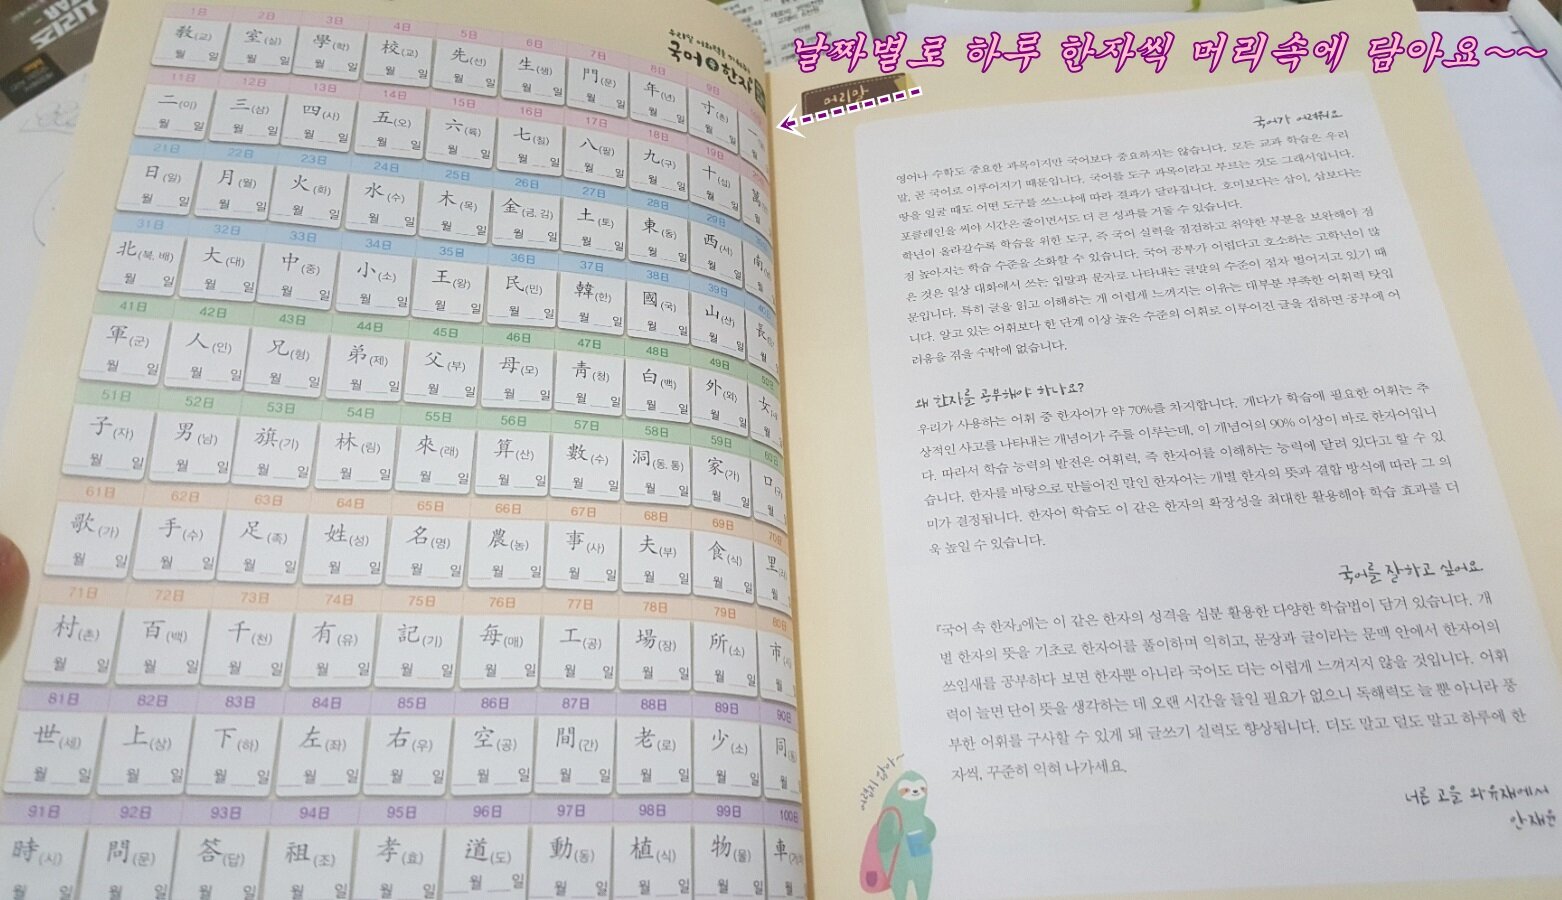 날짜별로 하루 한자씩 머리속에 담아요~~
우리말 어휘력을 키워주는
국어 속 한자
1日 2日 3日 4日 5日 6日 7日 8日 9日
敎(교) 室(실) 學(학) 校(교) 先(선) 生(생) 門(문) 年(년) 寸(촌) 一
월 일 월 일 월 일 월 일 월 일 월 일 월 일 월 일 월 일 월
11日 12日 13日 14日 15日 16日 17日 18日 19日
二(이) 三(삼) 四(사) 五(오) 六(륙) 七(칠) 八(팔) 九(구) 十(십) 萬
월 일 월 일 월 일 월 일 월 일 월 일 월 일 월 일 월 일 월
21日 22日 23日 24日 25日 26日 27日 28日 29日
日(일) 月(월) 火(화) 水(수) 木(목) 金(금, 김) 土(토) 東(동) 西(서) 南
월 일 월 일 월 일 월 일 월 일 월 일 월 일 월 일 월 일 월
31日 32日 33日 34日 35日 36日 37日 38日 39日 40日
北(북, 배) 大(대) 中(중) 小(소) 王(왕) 民(민) 韓(한) 國(국) 山(산) 長
월 일 월 일 월 일 월 일 월 일 월 일 월 일 월 일 월 일 월
41日 42日 43日 44日 45日 46日 47日 48日 49日 50日
軍(군) 人(인) 兄(형) 弟(제) 父(부) 母(모) 靑(청) 白(백) 外(외) 女
월 일 월 일 월 일 월 일 월 일 월 일 월 일 월 일 월 일 월
51日 52日 53日 54日 55日 56日 57日 58日 59日 60日
子(자) 男(남) 旗(기) 林(림) 來(래) 算(산) 數(수) 洞(동, 통) 家(가) 口
월 일 월 일 월 일 월 일 월 일 월 일 월 일 월 일 월 일 월
61日 62日 63日 64日 65日 66日 67日 68日 69日 70日
歌(가) 手(수) 足(족) 姓(성) 名(명) 農(농) 事(사) 夫(부) 食(식) 里
월 일 월 일 월 일 월 일 월 일 월 일 월 일 월 일 월 일 월
71日 72日 73日 74日 75日 76日 77日 78日 79日 80日
村(촌) 百(백) 千(천) 有(유) 記(기) 每(매) 工(공) 場(장) 所(소) 市
월 일 월 일 월 일 월 일 월 일 월 일 월 일 월 일 월 일 월
81日 82日 83日 84日 85日 86日 87日 88日 89日 90日
世(세) 上(상) 下(하) 左(좌) 右(우) 空(공) 間(간) 老(로) 少(소) 同
월 일 월 일 월 일 월 일 월 일 월 일 월 일 월 일 월 일 월
91日 92日 93日 94日 95日 96日 97日 98日 99日 100日
時(시) 問(문) 答(답) 祖(조) 孝(효) 道(도) 動(동) 植(식) 物(물) 車
월 일 월 일 월 일 월 일 월 일 월 일 월 일 월 일 월 일 월
머리말
국어가 어려워요
영어나 수학도 중요한 과목이지만 국어보다 중요하지는 않습니다. 모든 교과 학습은 우리
말, 곧 국어로 이루어지기 때문입니다. 국어를 도구 과목이라고 부르는 것도 그래서입니다.
땅을 일굴 때도 어떤 도구를 쓰느냐에 따라 결과가 달라집니다. 호미보다는 삽이, 삽보다는
포클레인을 써야 시간은 줄이면서도 더 큰 성과를 거둘 수 있습니다.
학년이 올라갈수록 학습을 위한 도구, 즉 국어 실력을 점검하고 취약한 부분을 보완해야 점
점 높아지는 학습 수준을 소화할 수 있습니다. 국어 공부가 어렵다고 호소하는 고학년이 많
은 것은 일상 대화에서 쓰는 입말과 문자로 나타내는 글말의 수준이 점차 벌어지고 있기 때
문입니다. 특히 글을 읽고 이해하는 게 어렵게 느껴지는 이유는 대부분 부족한 어휘력 탓입
니다. 알고 있는 어휘보다 한 단계 이상 높은 수준의 어휘로 이루어진 글을 접하면 공부에 어
려움을 겪을 수밖에 없습니다.
왜 한자를 공부해야 하나요?
우리가 사용하는 어휘 중 한자어가 약 70%를 차지합니다. 게다가 학습에 필요한 어휘는 추
상적인 사고를 나타내는 개념어가 주를 이루는데, 이 개념어의 90% 이상이 바로 한자어입니
다. 따라서 학습 능력의 발전은 어휘력, 즉 한자어를 이해하는 능력에 달려 있다고 할 수 있
습니다. 한자를 바탕으로 만들어진 말인 한자어는 개별 한자의 뜻과 결합 방식에 따라 그 의
미가 결정됩니다. 한자어 학습도 이 같은 한자의 확장성을 최대한 활용해야 학습 효과를 더
욱 높일 수 있습니다.
국어를 잘하고 싶어요
『국어 속 한자』에는 이 같은 한자의 성격을 십분 활용한 다양한 학습법이 담겨 있습니다. 개
별 한자의 뜻을 기초로 한자어를 풀이하며 익히고, 문장과 글이라는 문맥 안에서 한자어의
쓰임새를 공부하다 보면 한자뿐 아니라 국어도 더는 어렵게 느껴지지 않을 것입니다. 어휘
력이 늘면 단어 뜻을 생각하는 데 오랜 시간을 들일 필요가 없으니 독해력도 늘 뿐 아니라 풍
부한 어휘를 구사할 수 있게 돼 글쓰기 실력도 향상됩니다. 더도 말고 덜도 말고 하루에 한
자씩, 꾸준히 익혀 나가세요.
너른 고을 와유재에서
안재윤
어렵지 않아~